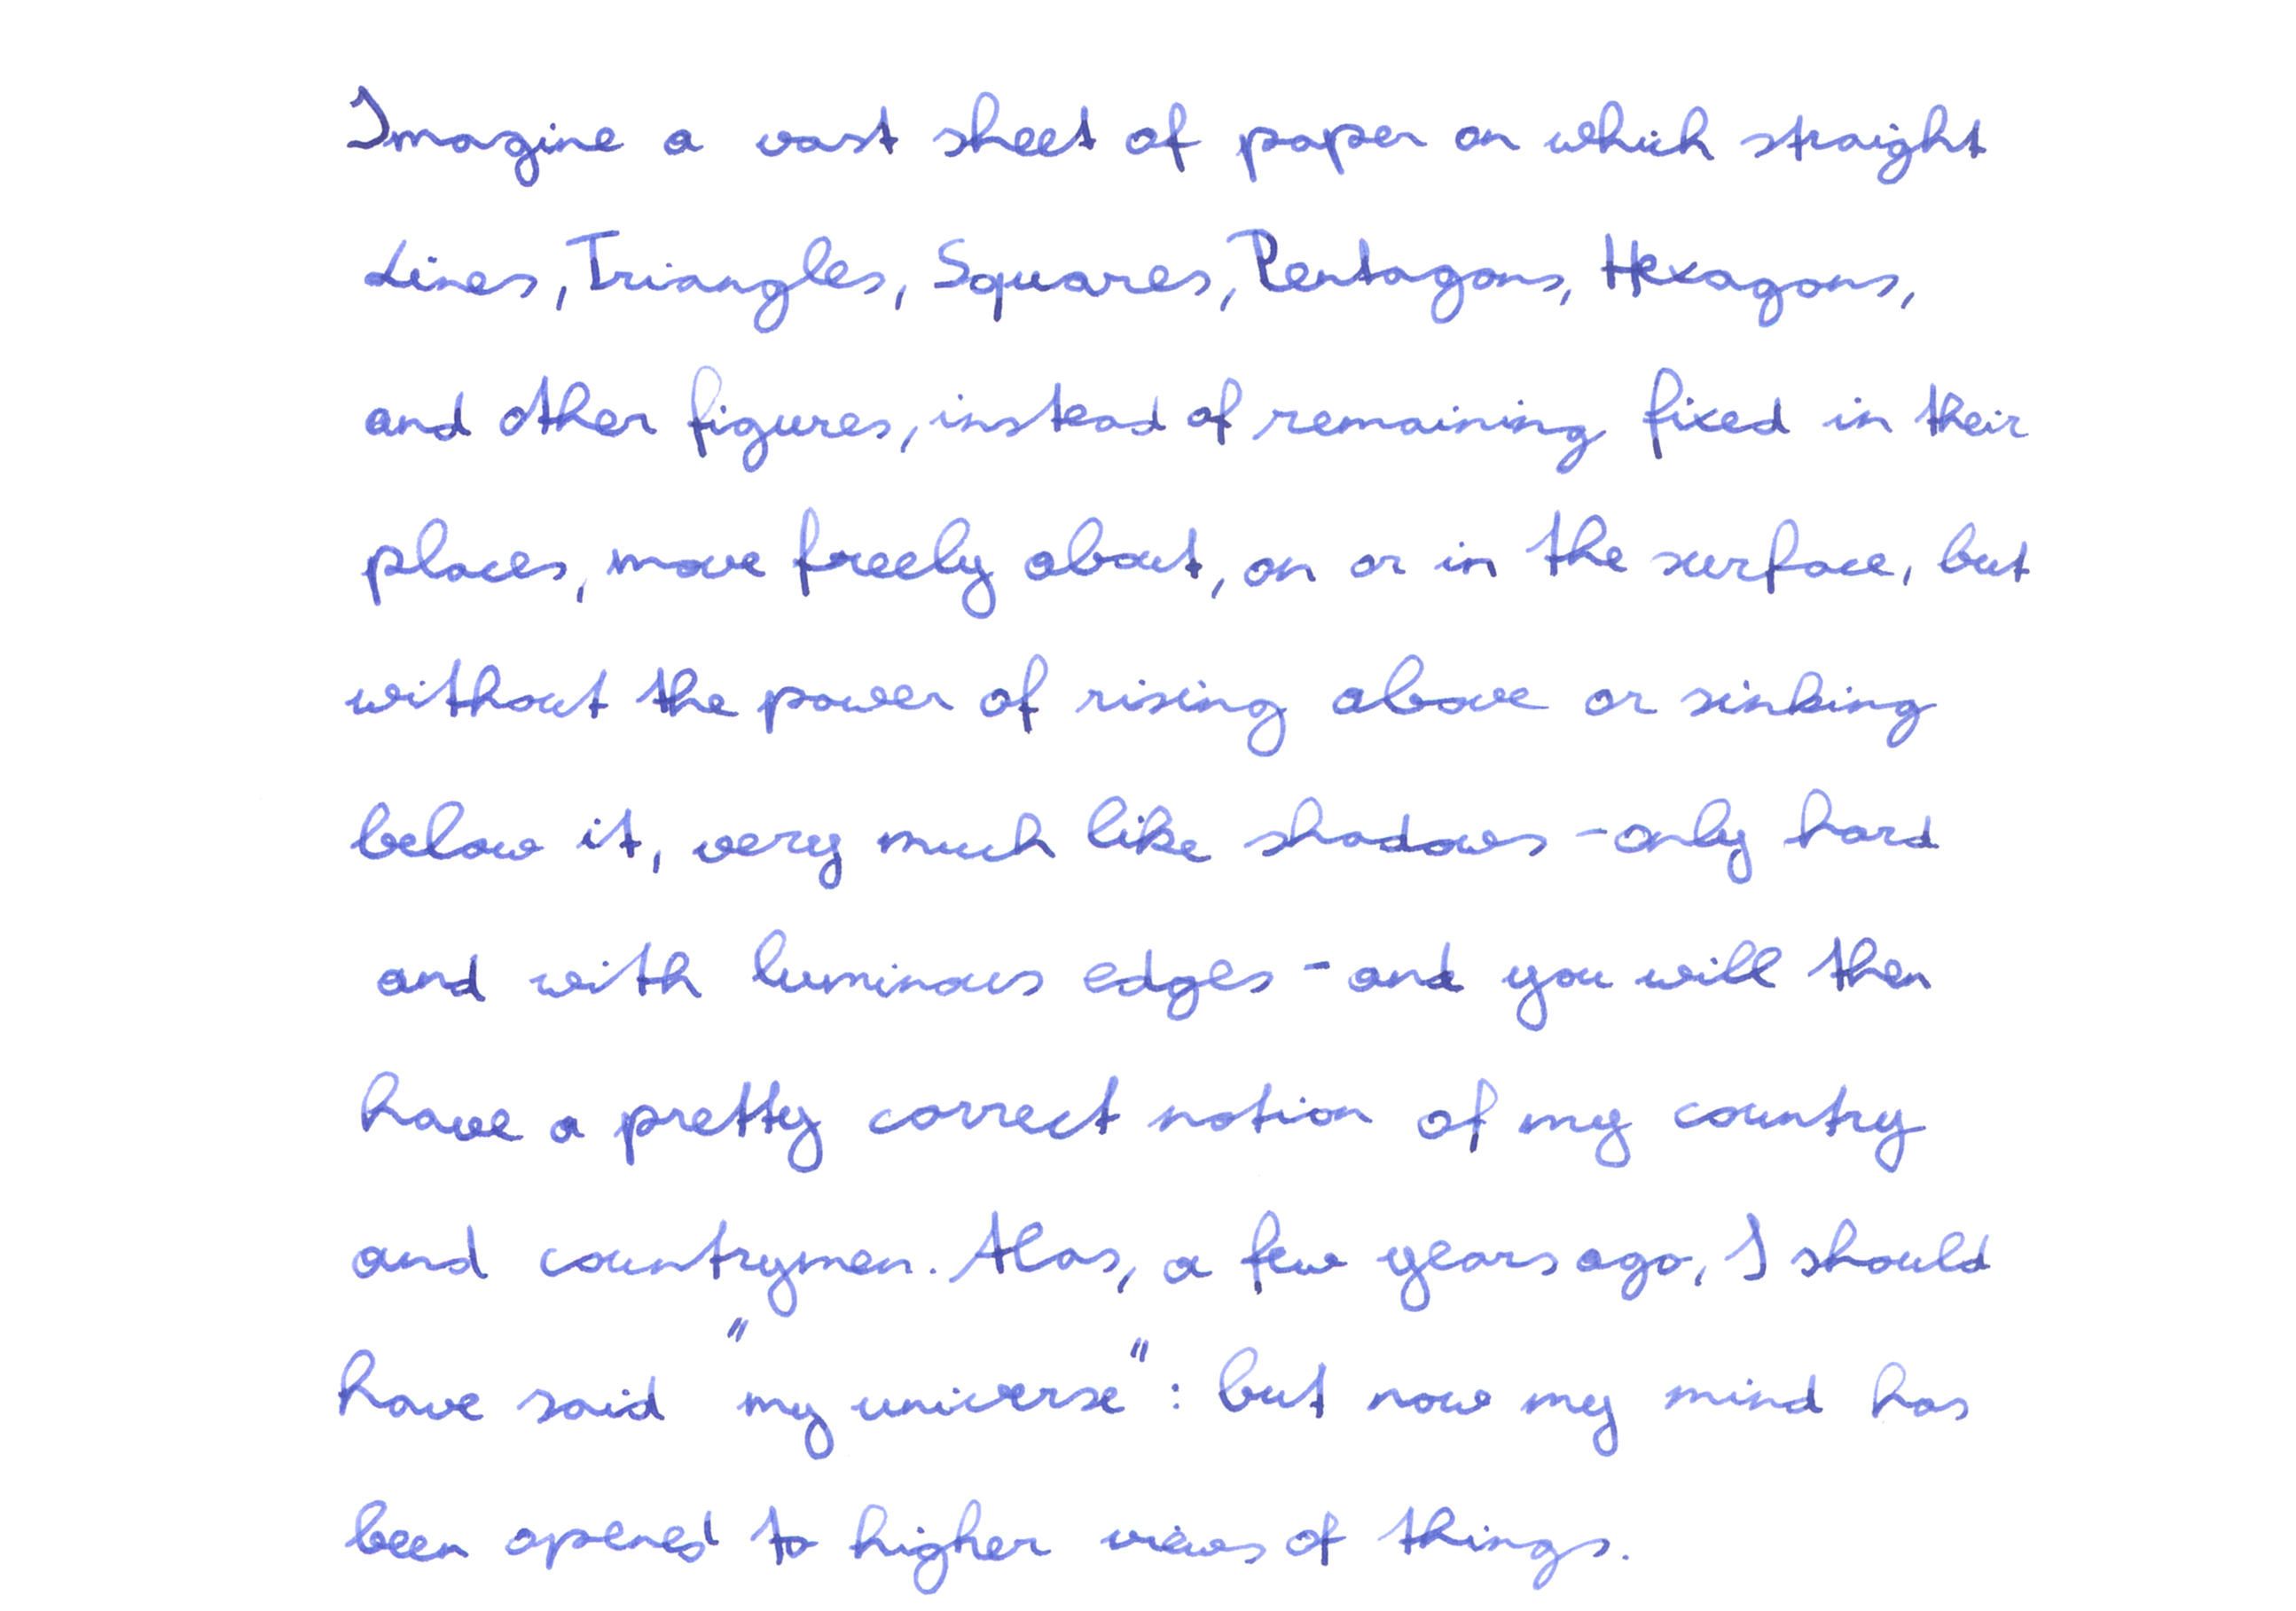 Imagine a vast sheet of paper on which straight
Lines, Triangles, Squares, Pentagons, Hexagons,
and other figures, instead of remaining fixed in their
places, move freely about, on or in the surface, but
without the power of rising above or sinking
below it, very much like shadows - only hard
and with luminous edges - and you will then
have a pretty correct notion of my country
and countrymen. Alas, a few years ago, I should
have said "my universe": but now my mind has
been opened to higher views of things.